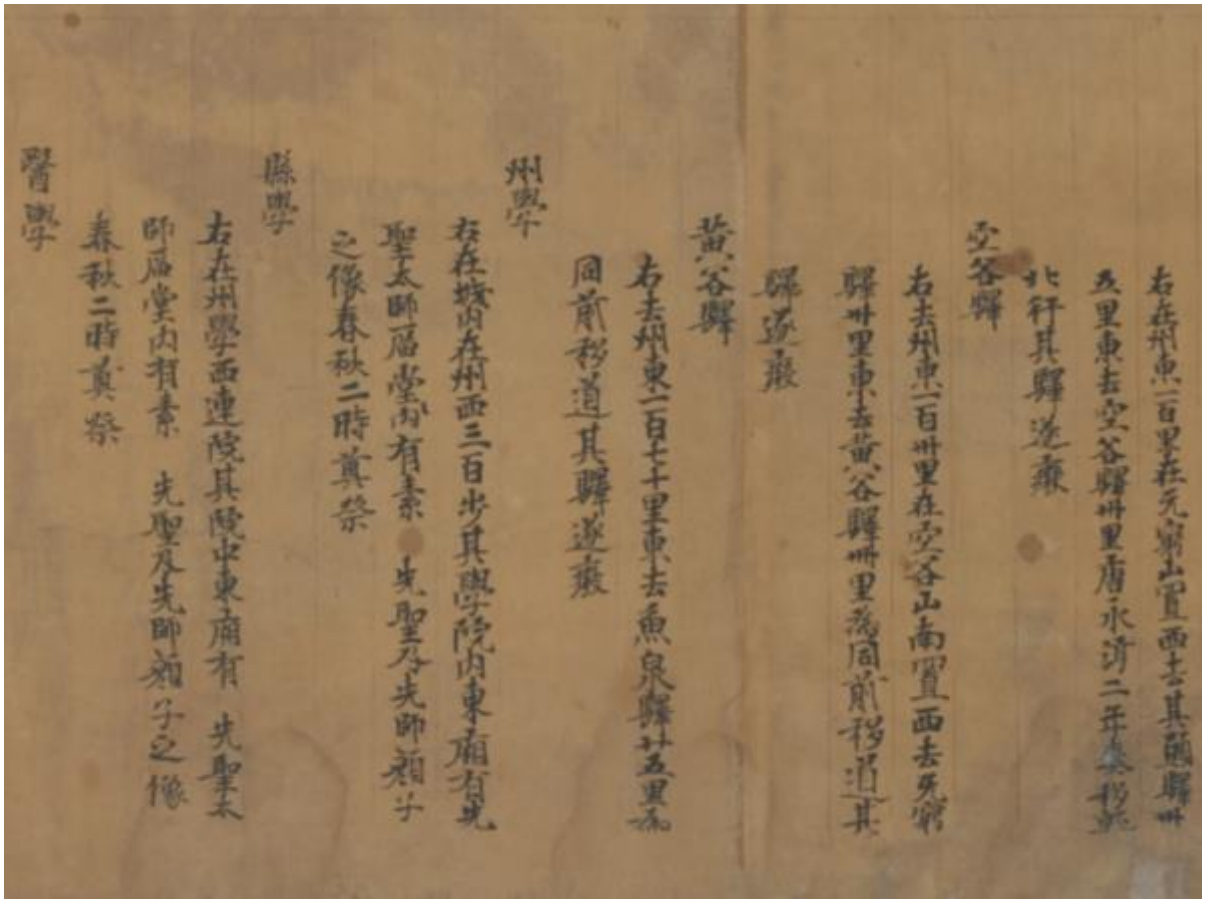 右在州東一百里在无窮山置西去其頭驛卅
五里東去空谷驛卅里唐永淳二年奏移就
北行其驛遂廢
空谷驛
右去州東一百卅里在空谷山南置西去无窮
驛卅里東去黃谷驛卌里為同前移道其
驛遂廢
黃谷驛
右去州東一百七十里東去魚泉驛廿五里為
同前移道其驛遂廢
州學
右在城內在州西三百步其學院內東廂有先
聖太師庿堂內有素 先聖及先師顏子
之像春秋二時奠祭
縣學
右在州學西連院其院中東廂有 先聖太
師庿堂內有素 先聖及先師顏子之像
春秋二時奠祭
醫學